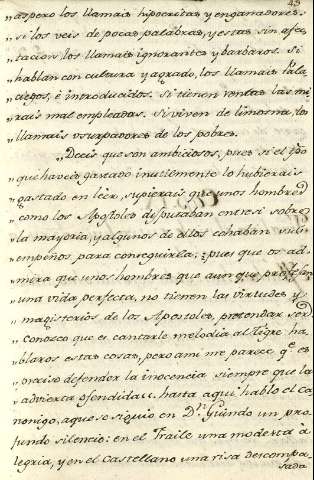 43
„aspero los llamais hipocritas y enganadores.
„si los veis de pocas palabras, y estas sin afec,,
„tacion los llamais ignorantes y barbaros. Si
„hablan con cultura y agrado, los llamais Pala,,
„ciegos, è introducidos. Si tienen rentas las mi,,
„rais mal empleadas. Si viven de limosna, los
„llamais vsurpadores de los pobres.
„Decis que son ambiciosos, pues si el tpō
„que haveis gastado inutilmente lo hubierais
„gastado en leer, supierais que unos hombres
„como los Apostoles disputaban entre si sobre
„la mayoria, y algunos de ellos echaban sus
„empeños para conseguirla; ¿pues que os ad,,
„mira que unos hombres que aunque profesan
„una vida perfecta, no tienen las virtudes y
„magisterios de los Apostoles, pretendan ser?
„conosco que es cantarle melodia al Tigre ha,,
„blaros estas cosas, pero ami me parece q.e es
„onciso defender la inocencia siempre que la
„advierta ofendida„. hasta aqui hablo el Ca
nonigo, a que se siguio en D.n Guindo un pro,,
fundo silencio: en el Fraile una modesta à
legria, y en el Castellano una risa descompa,,
sada